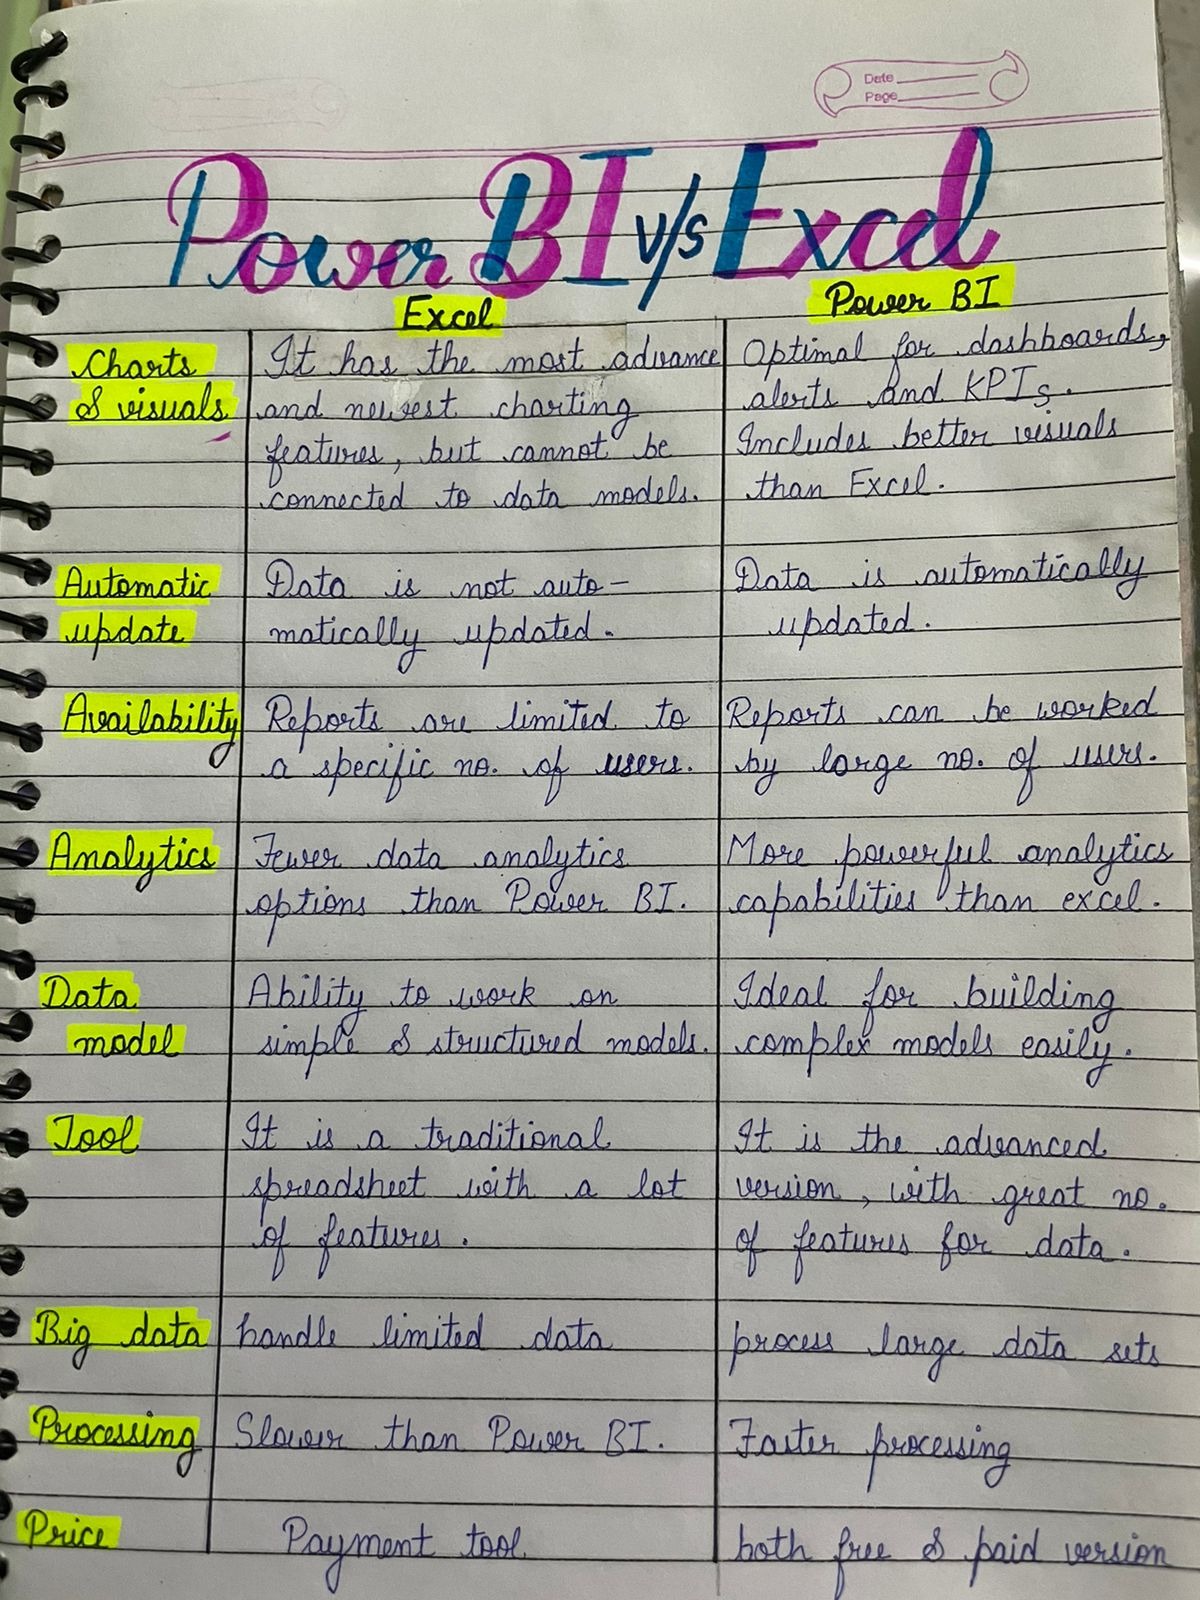 Date
Page
Power BI v/s Excel
Excel
Power BI
Charts
& visuals
It has the most advance
and newest charting
features, but cannot be
connected to data models.
Optimal for dashboards,
alerts and KPIs.
Includes better visuals
than Excel.
Automatic
update
Data is not auto-
matically updated.
Data is automatically
updated.
Availability
Reports are limited to
a specific no. of users.
Reports can be worked
by large no. of users.
Analytics
Fewer data analytics
options than Power BI.
More powerful analytics
capabilities than excel.
Data
model
Ability to work on
simple & structured models.
Ideal for building
complex models easily.
Tool
It is a traditional
spreadsheet with a lot
of features.
It is the advanced
version, with great no.
of features for data.
Big data
handle limited data
process large data sets
Processing
Slower than Power BI.
Faster processing
Price
Payment tool
both free & paid version